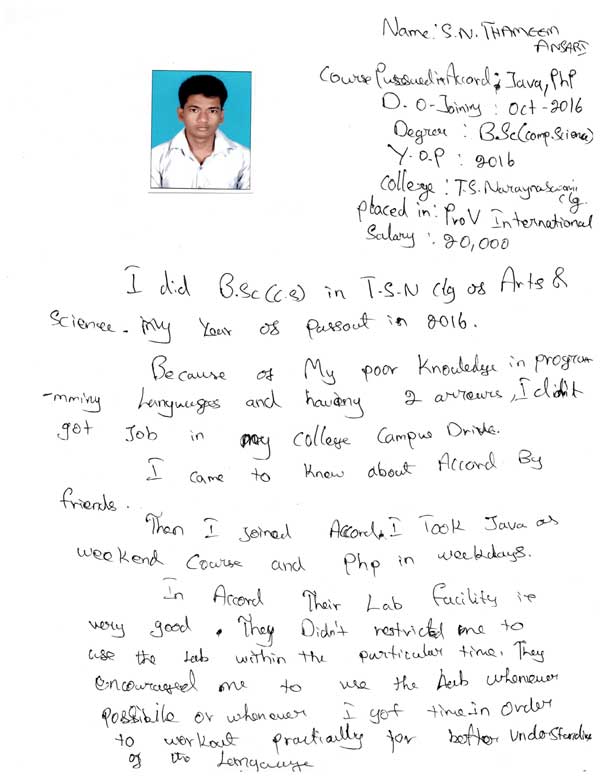 Name: S.N. THAMEEM
ANSARI
Course Pursued in Accord: Java, PhP
D.O-Joining: Oct-2016
Degree: B.Sc(Comp.Science)
Y.O.P: 2016
College: T.S. Narayanaswami
Clg.
placed in: ProV International
Salary: 20,000
I did B.Sc(C.S) in T.S.N Clg of Arts &
Science. My Year of Passout in 2016.
Because of My poor Knowledge in progra-
-mming Languages and having 2 arrears, I didn't
got Job in my College Campus Drive.
I came to know about Accord By
friends.
Then I joined Accord. I Took Java as
weekend Course and Php in weekdays.
In Accord Their Lab facility is
very good. They Didn't restricted me to
use the Lab within the particular time. They
encouraged me to use the Lab whenever
Possibile or whenever I got time in order
to workout practially for better Understanding
of the Language